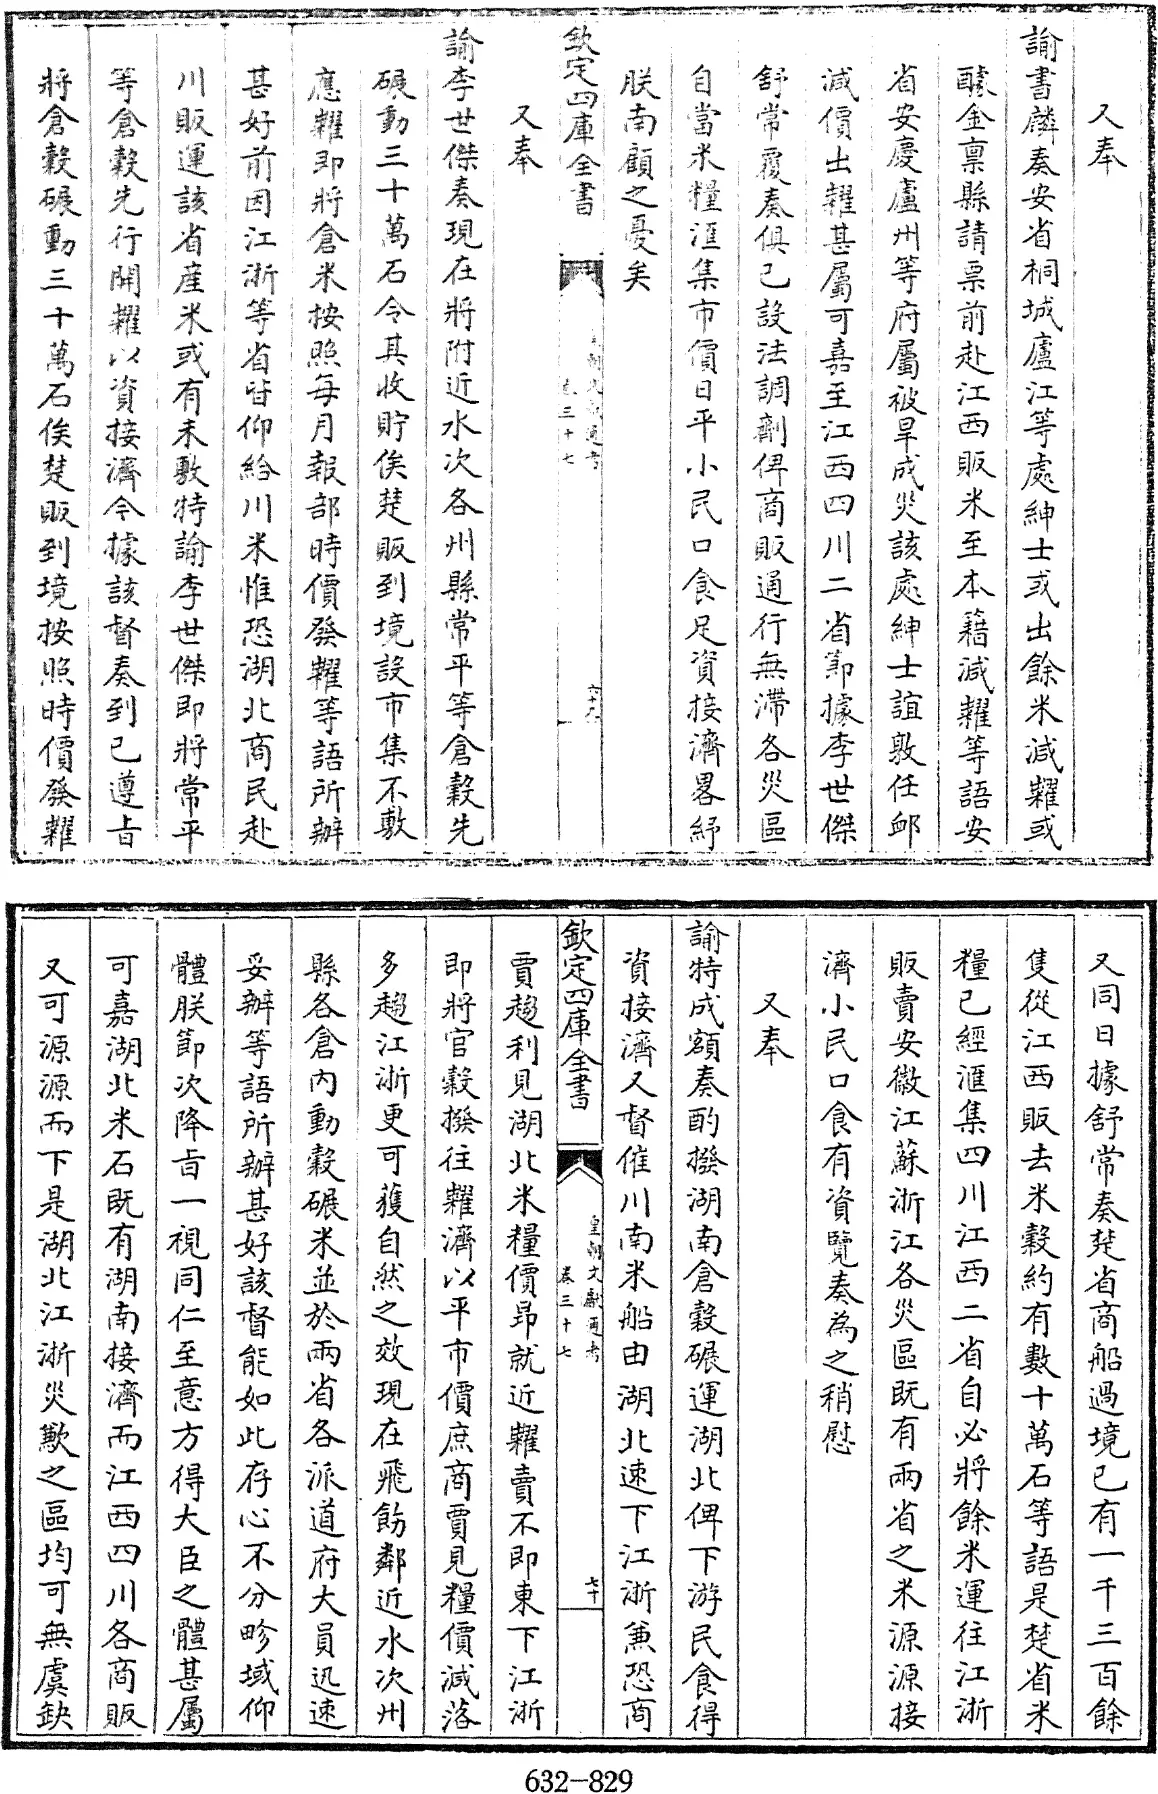 又奉
諭書麟奏安省桐城廬江等處紳士或出餘米減糶或
醵金稟縣請票前赴江西販米至本籍減糶等語安
省安慶廬州等府屬被旱成災該處紳士誼敦任卹
減價出糶甚屬可嘉至江西四川二省節據李世傑
舒常覆奏俱已設法調劑俾商販通行無滯各災區
自當米糧滙集市價日平小民口食足資接濟畧紓
朕南顧之憂矣
欽定四庫全書
卷三十七
六十九
又奉
諭李世傑奏現在將附近水次各州縣常平等倉穀先
碾動三十萬石令其收貯俟楚販到境設市集不敷
應糶即將倉米按照每月報部時價發糶等語所辦
甚好前因江浙等省皆仰給川米惟恐湖北商民赴
川販運該省産米或有未敷特諭李世傑即將常平
等倉穀先行開糶以資接濟今據該督奏到已遵㫖
將倉穀碾動三十萬石俟楚販到境按照時價發糶
又同日據舒常奏楚省商船過境已有一千三百餘
隻從江西販去米穀約有數十萬石等語是楚省米
糧已經滙集四川江西二省自必將餘米運往江浙
販賣安徽江蘇浙江各災區既有兩省之米源源接
濟小民口食有資覽奏為之稍慰
又奉
諭特成額奏酌撥湖南倉穀碾運湖北俾下游民食得
資接濟又督催川南米船由湖北速下江浙兼恐商
欽定四庫全書
皇朝文獻通考
卷三十七
七十
賈趨利見湖北米糧價昂就近糶賣不即東下江浙
即將官穀撥往糶濟以平市價庶商賈見糧價減落
多趨江浙更可獲自然之效現在飛飭鄰近水次州
縣各倉内動穀碾米並於兩省各派道府大員迅速
妥辦等語所辦甚好該督能如此存心不分畛域仰
體朕節次降㫖一視同仁至意方得大臣之體甚屬
可嘉湖北米石既有湖南接濟而江西四川各商販
又可源源而下是湖北江浙災歉之區均可無虞缺
632-829